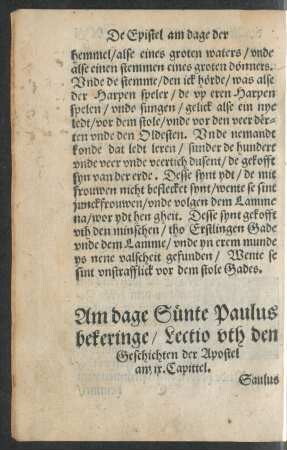 De Epistel am dage der
hemmel/alse eines groten waters/vnde
alse einen stemmen eines groten dönners.
Vnde de stemme/den ick hörde/was alse
der Harpen speler/de vp eren Harpen
spelen/vnde sungen/gelick alse ein nye
ledt/vor dem stole/vnde vor den veer dêr-
ten vnde den Oldesten. Vnde nemandt
konde dat ledt leren/sunder de hundert
vnde veer vnde veertich dusent/de gekofft
syn van der erde. Desse synt ydt/de mit
frouwen nicht beflecket synt/wente se sint
junckfrouwen/vnde volgen dem Lamme
na/wor ydt hen gheit. Desse synt gekofft
vth den minschen/tho Erstlingen Gade
vnde dem Lamme/vnde yn erem munde
ys nene valscheit gefunden/Wente se
sint vnstrafflick vor dem stole Gades.
Am dage Sünte Paulus
bekeringe/Lectio vth den
Geschichten der Apostel
am ix. Capittel.
Saulus